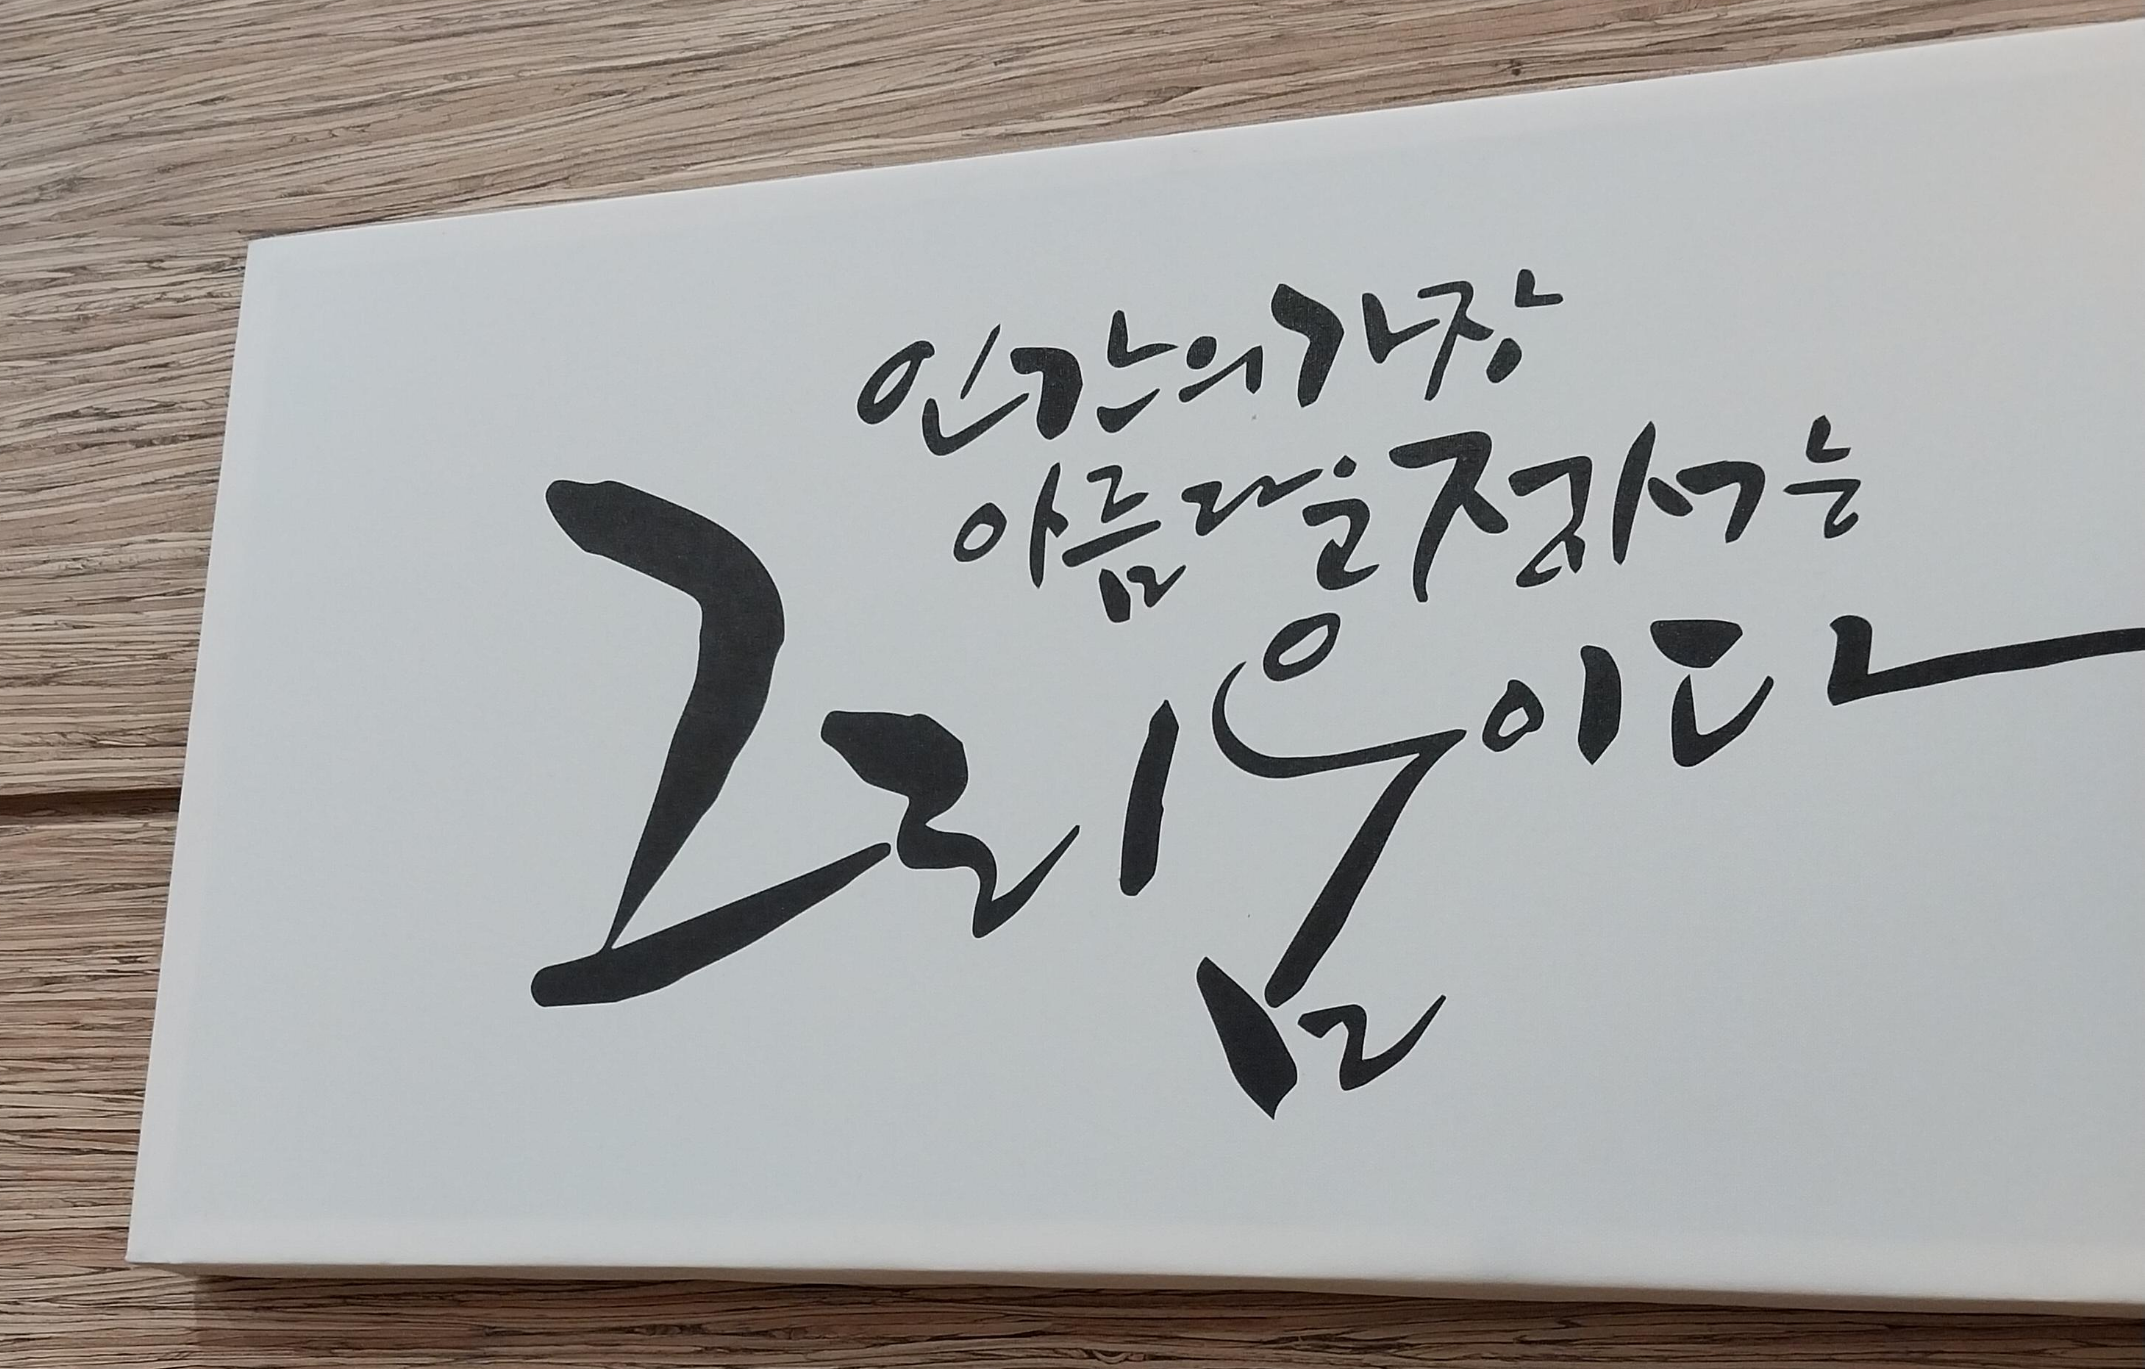 인간의 가장
아름다운 정서는
그리움이다